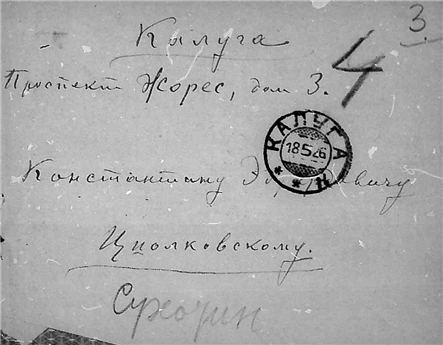 3.
Калуга
4
Проспект Жорес, дом 3.
КАЛУГА
18 5 26
Константину Эдуардовичу
Циолковскому.